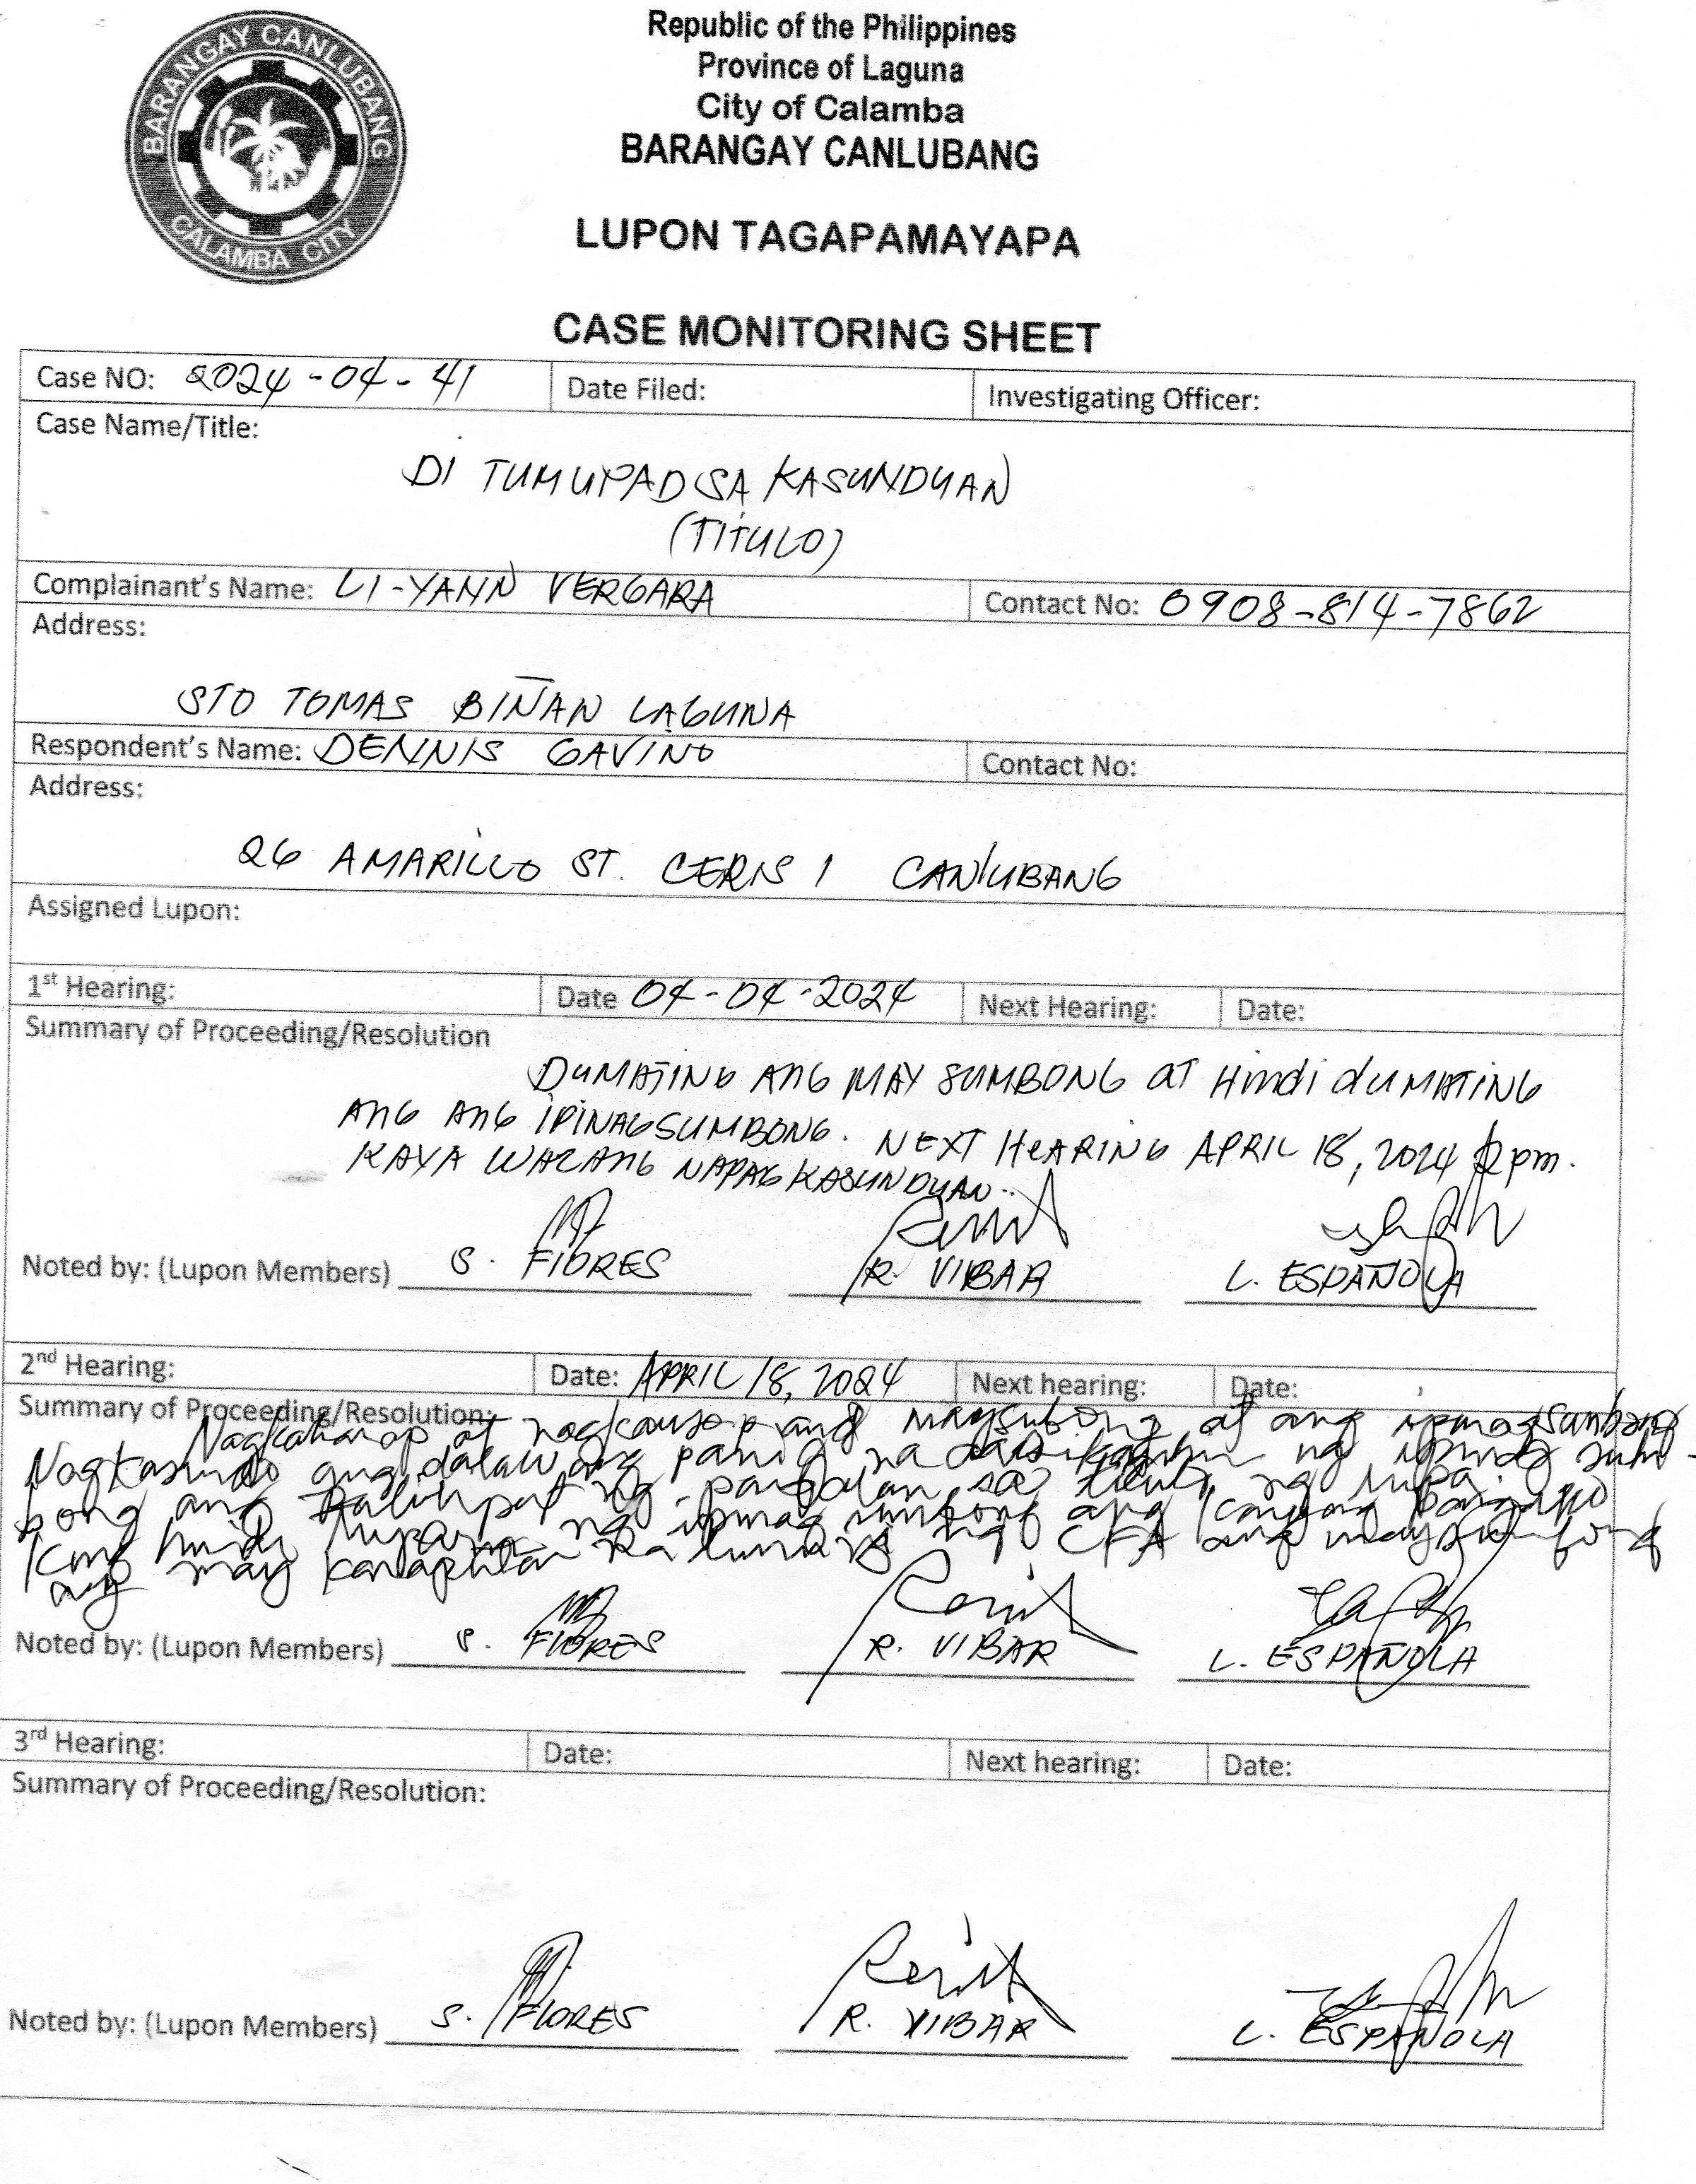 BARANGAY CANLUBANG
CALAMBA CITY
Republic of the Philippines
Province of Laguna
City of Calamba
BARANGAY CANLUBANG
LUPON TAGAPAMAYAPA
CASE MONITORING SHEET
Case NO: 2024-04-41 Date Filed: Investigating Officer:
Case Name/Title:
DI TUMUPAD SA KASUNDUAN
(TITULO)
Complainant's Name: LI-YANN VERGARA Contact No: 0908-814-7862
Address:
STO TOMAS BIÑAN LAGUNA
Respondent's Name: DENNIS GAVINO Contact No:
Address:
26 AMARILLO ST. CERIS 1 CANLUBANG
Assigned Lupon:
1st Hearing: Date 04-04-2024 Next Hearing: Date:
Summary of Proceeding/Resolution
DUMATING ANG MAY SUMBONG at Hindi dUMATING
ANG ANG IPINAGSUMBONG. NEXT HeARING APRIL 18, 2024 2 pm.
KAYA WALANG NAPAGKASUNDUAN..
Noted by: (Lupon Members) S. FLORES R. VIBAR L. ESPAÑOLA
2nd Hearing: Date: APRIL 18, 2024 Next hearing: Date:
Summary of Proceeding/Resolution:
Nagkaharap at nagkausap ang magsubong at ang ipinagsumbong
Nagkasundo ang dalawang panig na ng
bong ang ng pangalan sa ng lupa.
Kung hindi ng ang kanyang
ang may karapatan na ng CFA ang maysumbong
Noted by: (Lupon Members) S. FLORES R. VIBAR L. ESPAÑOLA
3rd Hearing: Date: Next hearing: Date:
Summary of Proceeding/Resolution:
Noted by: (Lupon Members) S. FLORES R. VIBAR L. ESPAÑOLA